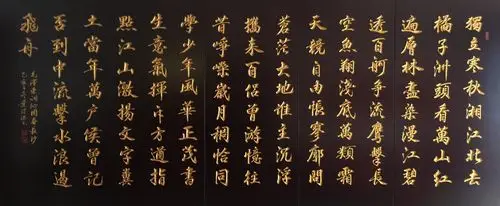 獨立寒秋湘江北去
橘子洲頭看萬山紅
遍層林盡染漫江碧
透百舸爭流鷹擊長
空魚翔淺底萬類霜
天競自由悵寥廓問
蒼茫大地誰主沉浮
攜來百侶曾游憶往
昔崢嶸歲月稠恰同
學少年風華正茂書
生意氣揮斥方遒指
點江山激揚文字糞
土當年萬戶侯曾記
否到中流擊水浪遏
飛舟
毛澤東沁園春長沙